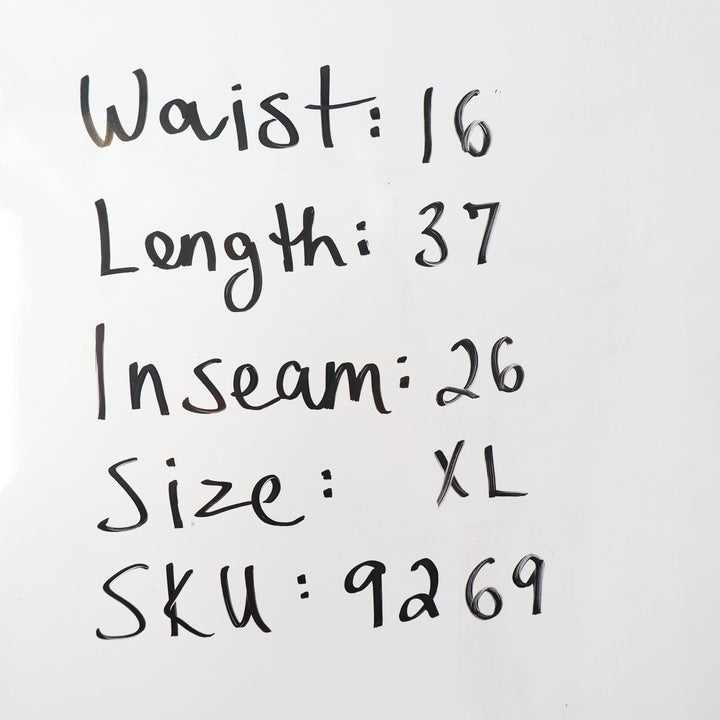 Waist: 16
Length: 37
Inseam: 26
Size: XL
SKU: 9269